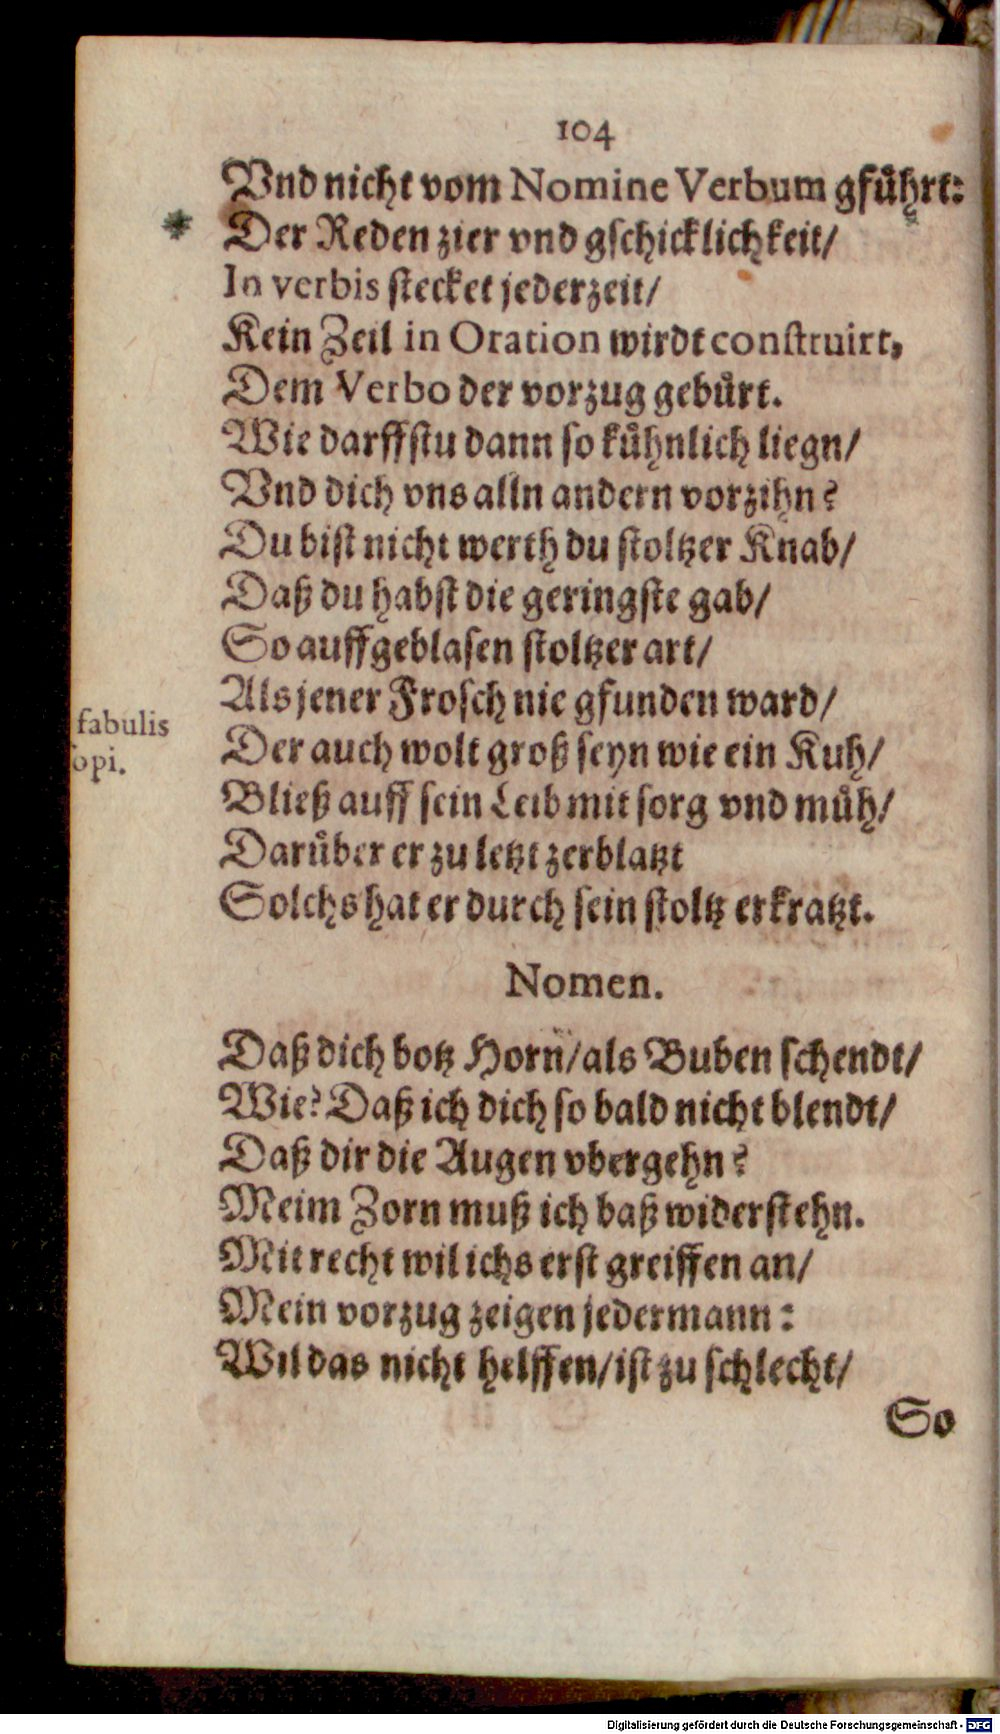 104
Vnd nicht vom Nomine Verbum gfuͤhrt:
* Der Reden zier vnd gschicklichkeit/
In verbis stecket jederzeit/
Kein Zeil in Oration wirdt construirt,
Dem Verbo der vorzug gebuͤrt.
Wie darffstu dann so kuͤhnlich liegn/
Vnd dich vns alln andern vorzihn?
Du bist nicht werth du stoltzer Knab/
Daß du habst die geringste gab/
So auffgeblasen stoltzer art/
Als jener Frosch nie gfunden ward/
fabulis
opi.
Der auch wolt groß seyn wie ein Kuh/
Bließ auff sein Leib mit sorg vnd muͤh/
Daruͤber er zu letzt zerblatzt
Solchs hat er durch sein stoltz erkratzt.
Nomen.
Daß dich botz Horn/als Buben schendt/
Wie? Daß ich dich so bald nicht blendt/
Daß dir die Augen vbergehn?
Meim Zorn muß ich baß widerstehn.
Mit recht wil ichs erst greiffen an/
Mein vorzug zeigen jedermann:
Wil das nicht helffen/ist zu schlecht/
So
Digitalisierung gefördert durch die Deutsche Forschungsgemeinschaft - DFG